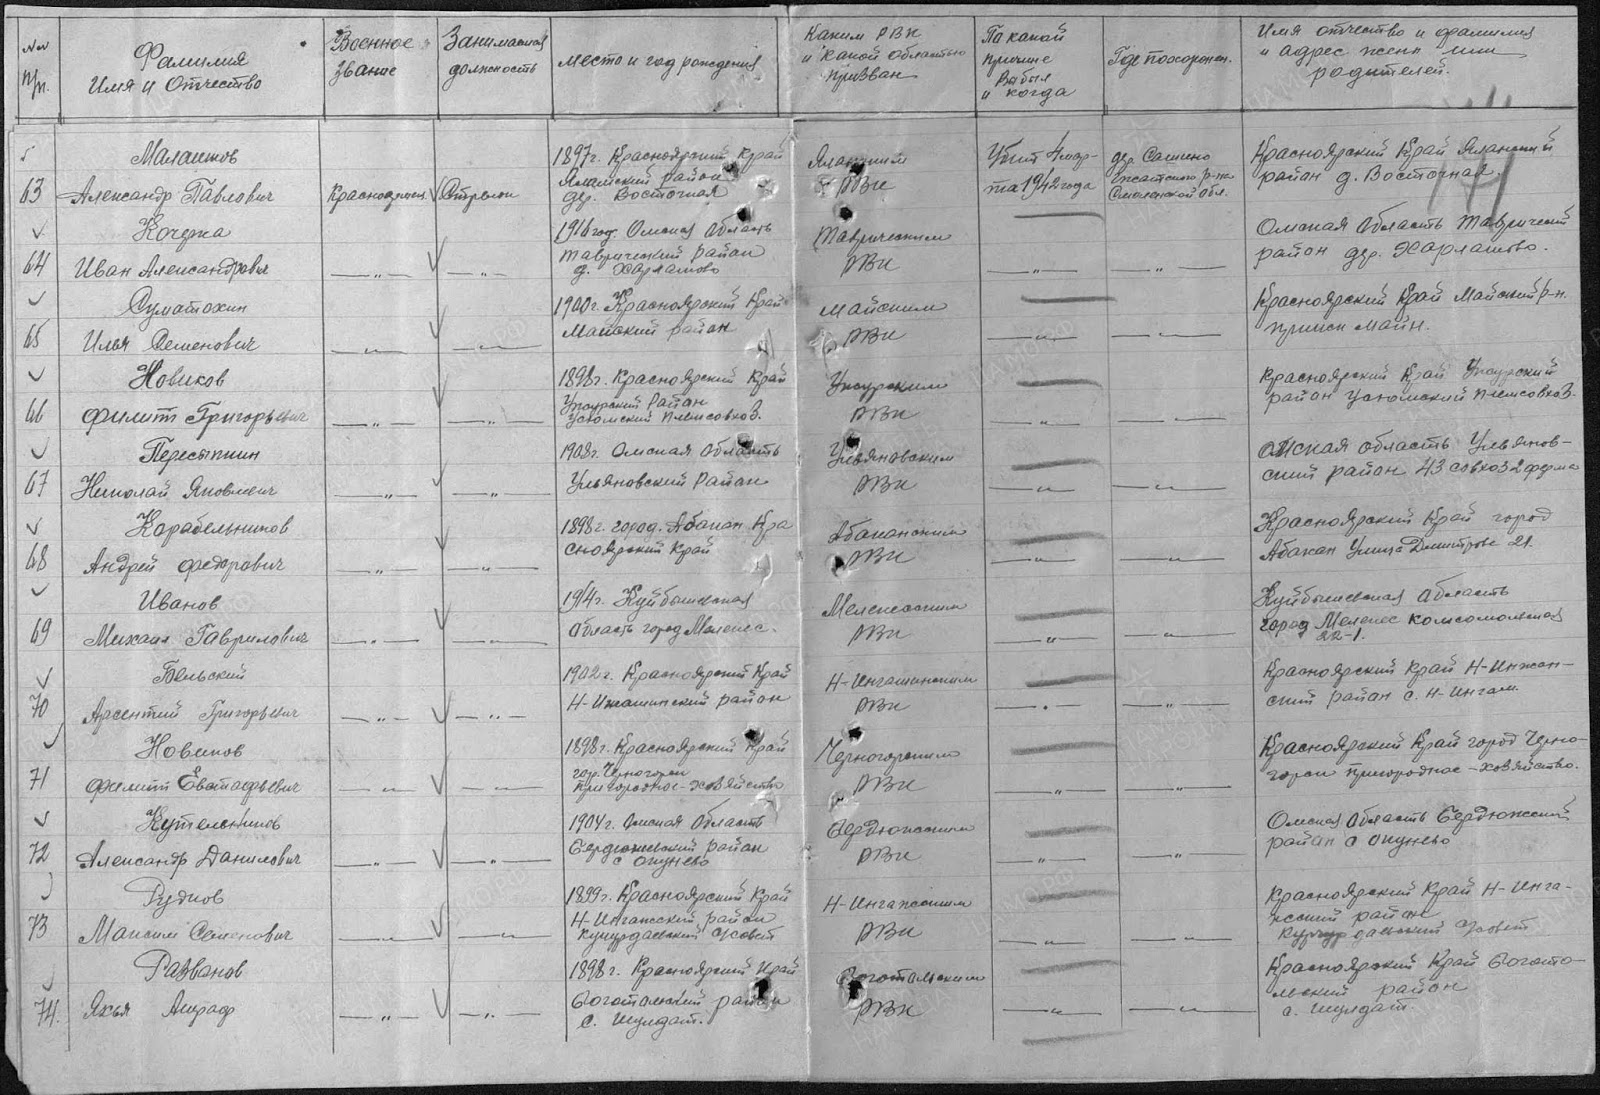 №№ п/п.
Фамилия Имя и Отчество
Военное звание
Занимаемая должность
Место и год рождения
Каким РВК и какой областью призван
По какой причине выбыл и когда
Где похоронен.
Имя отчество и фамилия и адрес жены или родителей.
141
Малашков
1897г. Красноярский Край
Убит 4 мар-
Красноярский Край
63 Александр Павлович
Красноармеец
Стрелок
район
дер. Восточная
РВК
та 1942 года
дер. Сашино
Смоленской обл.
район д. Восточная.
Кочержа
1916 год. Омская Область
Таврическим
Омская Область Таврический
64 Иван Александрович
—„—
—„—
Таврический район
д. Харламово
РВК
—„—
—„—
район дер. Харламово.
Суматохин
1900г. Красноярский Край
Майским
Красноярский Край Майский р-н.
65 Илья Семенович
—„—
—„—
Майский район
РВК
—„—
—„—
прииск Майн.
Новиков
1898г. Красноярский Край
Ужурским
Красноярский Край Ужурский
66 Филипп Григорьевич
—„—
—„—
Ужурский Район
племсовхоз.
РВК
—„—
—„—
район племсовхоз.
Пересыпкин
1908г. Омская Область
Ульяновским
Омская область Ульянов-
67 Николай Яковлевич
—„—
—„—
Ульяновский Район
РВК
—„—
—„—
ский район 43 совхоз 2 ферма
Карабельников
1898г. город. Абакан Кра
Абаканским
Красноярский Край город
68 Андрей Федорович
—„—
—„—
сноярский Край
РВК
—„—
—„—
Абакан Улица Дмитрова 21.
Иванов
1914г. Куйбышевская
Мелекесским
Куйбышевская Область
69 Михаил Гаврилович
—„—
—„—
Область город Мелекес.
РВК
—„—
—„—
город Мелекес Комсомольская
22-1.
Бельский
1902г. Красноярский Край
Н-Ингашинским
Красноярский Край
70 Арсентий Григорьевич
—„—
—„—
район
РВК
—„—
—„—
ский район с. Н-Ингаш.
Новиков
1898г. Красноярский Край
Черногорским
Красноярский Край город Черно-
71 Филипп Евстафьевич
—„—
—„—
гор. Черногорск
Пригородное-хозяйство
РВК
—„—
—„—
горск пригородное-хозяйство.
Кутельников
1904г. Омская Область
Бердюжским
Омская Область Бердюжский
72 Александр Данилович
—„—
—„—
район
с Окунево
РВК
—„—
—„—
район с Окунево
Рудков
1899г. Красноярский Край
Н-Ингажским
Красноярский Край Н-Инга-
73 Максим Семенович
—„—
—„—
район
РВК
—„—
—„—
район
Разванов
1898г. Красноярский Край
Боготольским
Красноярский Край Богото-
74. Яхья Ашраф
—„—
—„—
Боготольский район
с. Шулдат.
РВК
—„—
—„—
льский район
с. Шулдат.